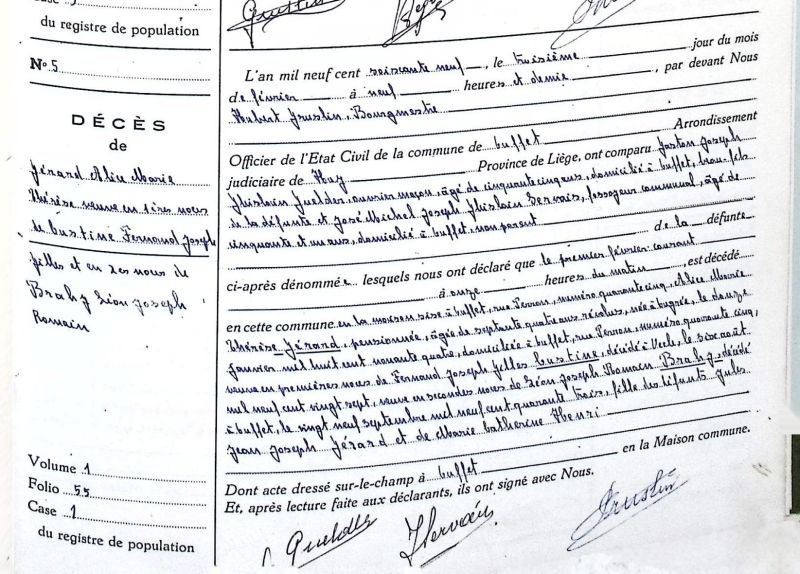 Case
du registre de population
N° 5
DÉCÈS
de
Gérard Alice Marie
Thérèse veuve en 1res noces
de Custine Fernand Joseph
Gilles et en 2es noces de
Brahy Léon Joseph
Romain
Volume 1
Folio 55
Case 1
du registre de population
L'an mil neuf cent soixante neuf, le troisième jour du mois
de février à neuf heures et demie, par devant Nous
Hubert Gustin, Bourgmestre
Officier de l'Etat Civil de la commune de Buffet Arrondissement
judiciaire de Huy Province de Liège, ont comparu Gaston Joseph
Ghislain, ouvrier maçon, âgé de cinquante cinq ans, domicilié à Buffet, beau-fils
de la défunte et José Michel Joseph Ghislain Servais, fossoyeur communal, âgé de
cinquante et un ans, domicilié à Buffet, non parent
de la défunte
ci-après dénommée lesquels nous ont déclaré que le premier février courant
à onze heures du matin, est décédé
en cette commune en la maison sise à Buffet, rue Perron, numéro quarante cinq, Alice Marie
Thérèse Gérard, pensionnée, âgée de septante quatre ans révolus, née à, le douze
janvier mil huit cent nonante quatre, domiciliée à Buffet, rue Perron, numéro quarante cinq,
veuve en premières noces de Fernand Joseph Gilles Custine, décédé à, le six août
mil neuf cent vingt sept, veuve en secondes noces de Léon Joseph Romain Brahy, décédé
à Buffet, le vingt neuf septembre mil neuf cent quarante trois, fille des défunts Jules
Jean Joseph Gérard et de Marie Catherine Henri
Dont acte dressé sur-le-champ à Buffet en la Maison commune.
Et, après lecture faite aux déclarants, ils ont signé avec Nous.